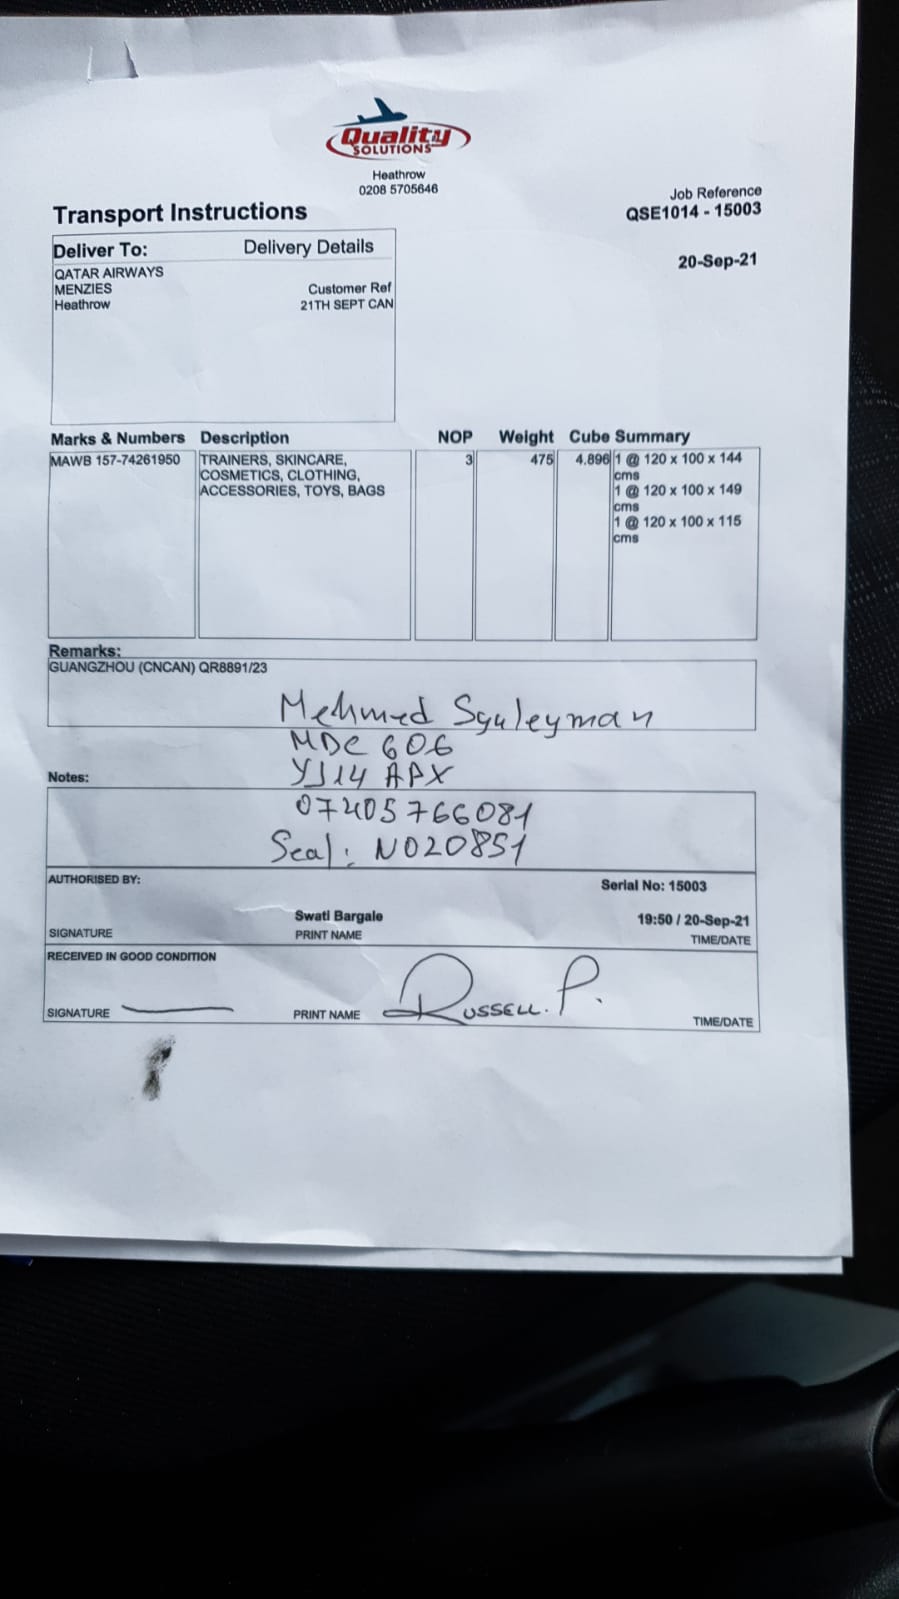 Quality
SOLUTIONS
Heathrow
0208 5705646
Transport Instructions
Job Reference
QSE1014 - 15003
20-Sep-21
Deliver To: Delivery Details
QATAR AIRWAYS
MENZIES Customer Ref
Heathrow 21TH SEPT CAN
Marks & Numbers Description NOP Weight Cube Summary
MAWB 157-74261950 TRAINERS, SKINCARE, 3 475 4.896 1 @ 120 x 100 x 144
COSMETICS, CLOTHING, cms
ACCESSORIES, TOYS, BAGS 1 @ 120 x 100 x 149
cms
1 @ 120 x 100 x 115
cms
Remarks:
GUANGZHOU (CNCAN) QR8891/23
Mehmed Syuleyman
MDC 606
YJ14 APX
Notes:
07405766081
Seal: N020851
AUTHORISED BY: Serial No: 15003
Swati Bargale 19:50 / 20-Sep-21
SIGNATURE PRINT NAME TIME/DATE
RECEIVED IN GOOD CONDITION
SIGNATURE PRINT NAME RUSSELL. P. TIME/DATE